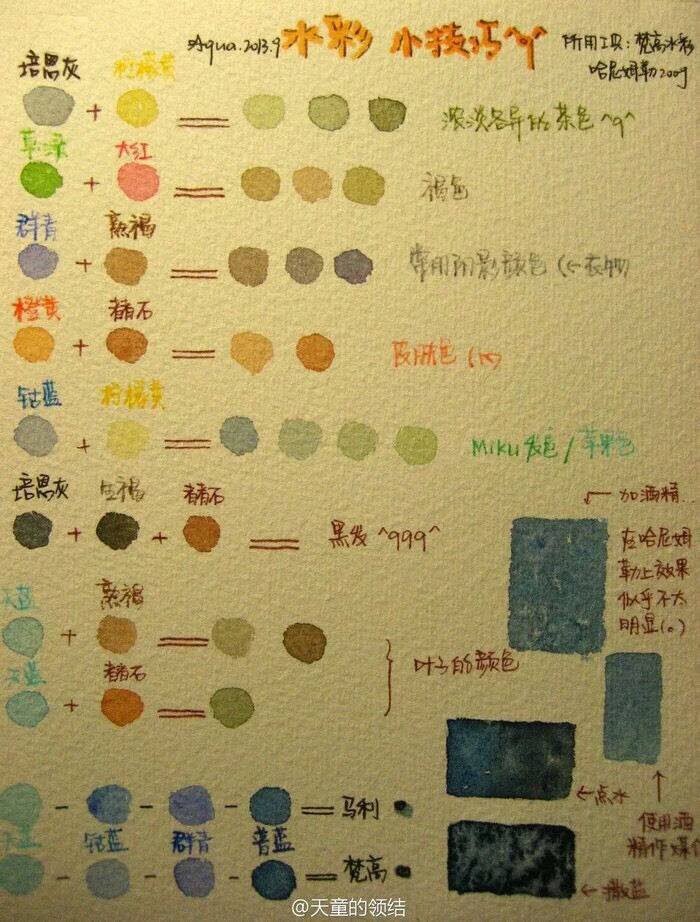 Aqua.2013.9 水彩 小技巧^q^ 所用工具：梵高水彩
哈尼姆勒200g
培恩灰 柠檬黄
+ = 浓淡各异的茶色^q^
草绿 大红
+ = 褐色
群青 熟褐
+ = 常用阴影颜色（←衣物）
橙黄 赭石
+ = 皮肤色
钴蓝 柠檬黄
+ = Miku发色/苹果色
培恩灰 生褐 赭石
+ + = 黑发^qqq^
←加酒精
在哈尼姆
勒上效果
似乎不太
明显(。)
天蓝 熟褐
+ =
天蓝 赭石
+ =
} 叶子的颜色
- - - = 马利
天蓝 钴蓝 群青 普蓝
- - - = 梵高
←点水
↑
使用酒
精作媒介
←撒盐
@天童的领结